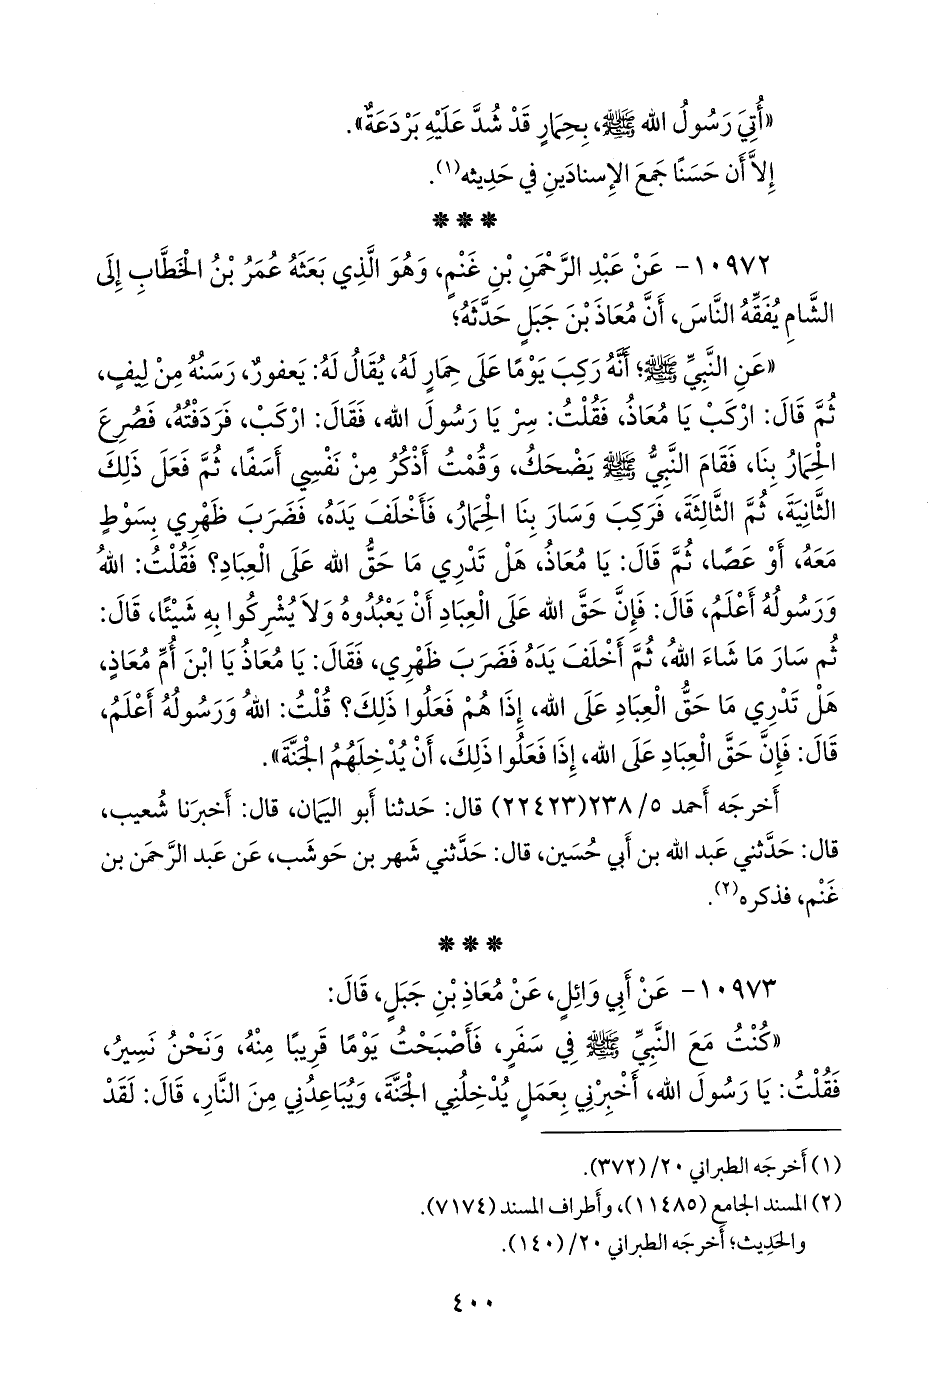 «أُتِيَ رَسُولُ الله ﷺ، بِحِمَارٍ قَدْ شُدَّ عَلَيْهِ بَرْدَعَةٌ».
إِلاَّ أَن حَسَنًا جَمَعَ الإِسنادَينِ في حَدِيثه(١).
* * *
١٠٩٧٢- عَنْ عَبْدِ الرَّحْمَنِ بْنِ غَنْمٍ، وَهُوَ الَّذِي بَعَثَهُ عُمَرُ بْنُ الْخَطَّابِ إِلَى
الشَّامِ يُفَقِّهُ النَّاسَ، أَنَّ مُعَاذَ بْنَ جَبَلٍ حَدَّثَهُ؛
«عَنِ النَّبِيِّ ﷺ؛ أَنَّهُ رَكِبَ يَوْمًا عَلَى حِمَارٍ لَهُ، يُقَالُ لَهُ: يَعفورٌ، رَسَنُهُ مِنْ لِيفٍ،
ثُمَّ قَالَ: ارْكَبْ يَا مُعَاذُ، فَقُلْتُ: سِرْ يَا رَسُولَ الله، فَقَالَ: ارْكَبْ، فَرَدَفْتُهُ، فَصُرِعَ
الْحِمَارُ بِنَا، فَقَامَ النَّبِيُّ ﷺ يَضْحَكُ، وَقُمْتُ أَذْكُرُ مِنْ نَفْسِي أَسَفًا، ثُمَّ فَعَلَ ذَلِكَ
الثَّانِيَةَ، ثُمَّ الثَّالِثَةَ، فَرَكِبَ وَسَارَ بِنَا الْحِمَارُ، فَأَخْلَفَ يَدَهُ، فَضَرَبَ ظَهْرِي بِسَوْطٍ
مَعَهُ، أَوْ عَصًا، ثُمَّ قَالَ: يَا مُعَاذُ، هَلْ تَدْرِي مَا حَقُّ الله عَلَى الْعِبَادِ؟ فَقُلْتُ: اللهُ
وَرَسُولُهُ أَعْلَمُ، قَالَ: فَإِنَّ حَقَّ الله عَلَى الْعِبَادِ أَنْ يَعْبُدُوهُ وَلاَ يُشْرِكُوا بِهِ شَيْئًا، قَالَ:
ثُم سَارَ مَا شَاءَ اللهُ، ثُمَّ أَخْلَفَ يَدَهُ فَضَرَبَ ظَهْرِي، فَقَالَ: يَا مُعَاذُ يَا ابْنَ أُمِّ مُعَاذٍ،
هَلْ تَدْرِي مَا حَقُّ الْعِبَادِ عَلَى الله، إِذَا هُمْ فَعَلُوا ذَلِكَ؟ قُلْتُ: اللهُ وَرَسُولُهُ أَعْلَمُ،
قَالَ: فَإِنَّ حَقَّ الْعِبَادِ عَلَى الله، إِذَا فَعَلُوا ذَلِكَ، أَنْ يُدْخِلَهُمُ الْجَنَّةَ».
أَخرجَه أَحمد ٥/ ٢٣٨(٢٢٤٢٣) قال: حَدثنا أَبو اليَمان، قال: أَخبرَنا شُعيب،
قال: حَدَّثني عَبد الله بن أَبي حُسَين، قال: حَدَّثني شَهر بن حَوشَب، عَن عَبد الرَّحمَن بن
غَنْم، فذكره(٢).
* * *
١٠٩٧٣- عَنْ أَبِي وَائِلٍ، عَنْ مُعَاذِ بْنِ جَبَلٍ، قَالَ:
«كُنْتُ مَعَ النَّبِيِّ ﷺ فِي سَفَرٍ، فَأَصْبَحْتُ يَوْمًا قَرِيبًا مِنْهُ، وَنَحْنُ نَسِيرُ،
فَقُلْتُ: يَا رَسُولَ الله، أَخْبِرْنِي بِعَمَلٍ يُدْخِلُنِي الْجَنَّةَ، وَيُبَاعِدُنِي مِنَ النَّارِ، قَالَ: لَقَدْ
(١) أَخرجَه الطبراني ٢٠/ (٣٧٢).
(٢) المسند الجامع (١١٤٨٥)، وأَطراف المسند (٧١٧٤).
والحَدِيث؛ أَخرجَه الطبراني ٢٠/ (١٤٠).
٤٠٠